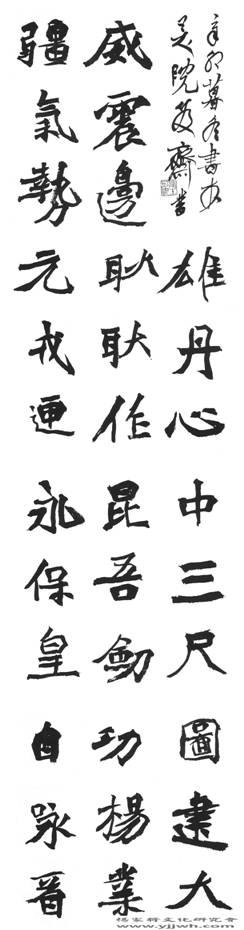 威震邊
疆氣勢
雄丹心
耿耿作
元戎匣
中三尺
昆吾劍
永保皇
圖建大
功楊業
自詠
辛卯暮冬書於
齋書
楊家將文化研究會
www.yjjwh.com